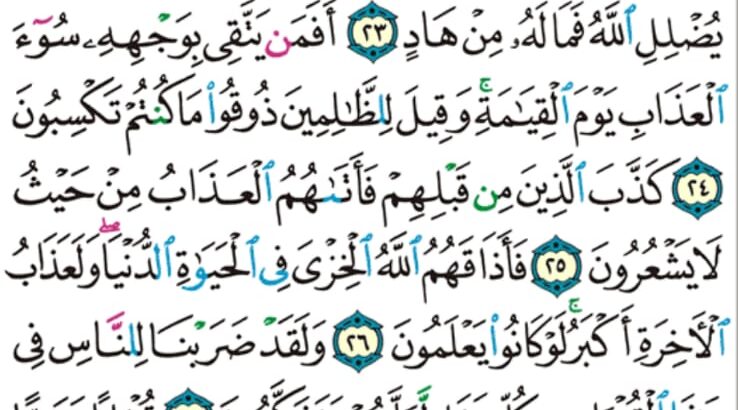 يُضْلِلِ ٱللَّهُ فَمَا لَهُۥ مِنْ هَادٍ ٢٣ أَفَمَن يَتَّقِى بِوَجْهِهِۦ سُوٓءَ
ٱلْعَذَابِ يَوْمَ ٱلْقِيَـٰمَةِ ۚ وَقِيلَ لِلظَّـٰلِمِينَ ذُوقُوا۟ مَا كُنتُمْ تَكْسِبُونَ
٢٤ كَذَّبَ ٱلَّذِينَ مِن قَبْلِهِمْ فَأَتَىٰهُمُ ٱلْعَذَابُ مِنْ حَيْثُ
لَا يَشْعُرُونَ ٢٥ فَأَذَاقَهُمُ ٱللَّهُ ٱلْخِزْىَ فِى ٱلْحَيَوٰةِ ٱلدُّنْيَا ۖ وَلَعَذَابُ
ٱلْـَٔاخِرَةِ أَكْبَرُ ۚ لَوْ كَانُوا۟ يَعْلَمُونَ ٢٦ وَلَقَدْ ضَرَبْنَا لِلنَّاسِ فِى